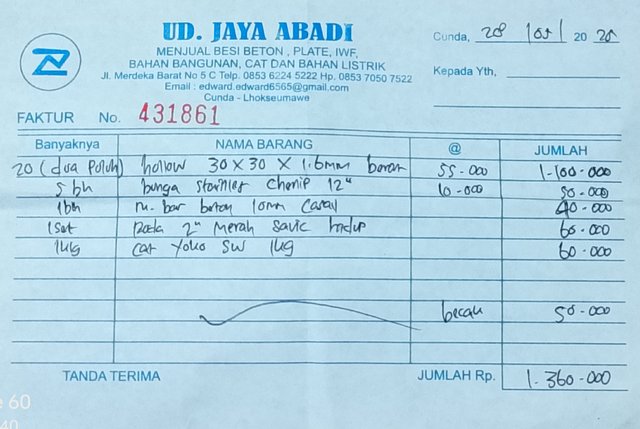 UD. JAYA ABADI
MENJUAL BESI BETON , PLATE, IWF,
BAHAN BANGUNAN, CAT DAN BAHAN LISTRIK
Jl. Merdeka Barat No 5 C Telp. 0853 6224 5222 Hp. 0853 7050 7522
Email : edward.edward6565@gmail.com
Cunda - Lhokseumawe
Cunda, 28 / 05 / 20 25
Kepada Yth,
FAKTUR No. 431861
Banyaknya NAMA BARANG @ JUMLAH
20 (dua puluh) hollow 30 x 30 x 1.6mm 55-000 1-100-000
5 bh bunga 12" 10-000 50-000
1bh m. bar beton 10mm 40-000
1set Roda 2" Merah savic hidup 60-000
1kg cat Yoko SW 1kg 60-000
becak 50-000
TANDA TERIMA JUMLAH Rp. 1.360-000
60
40